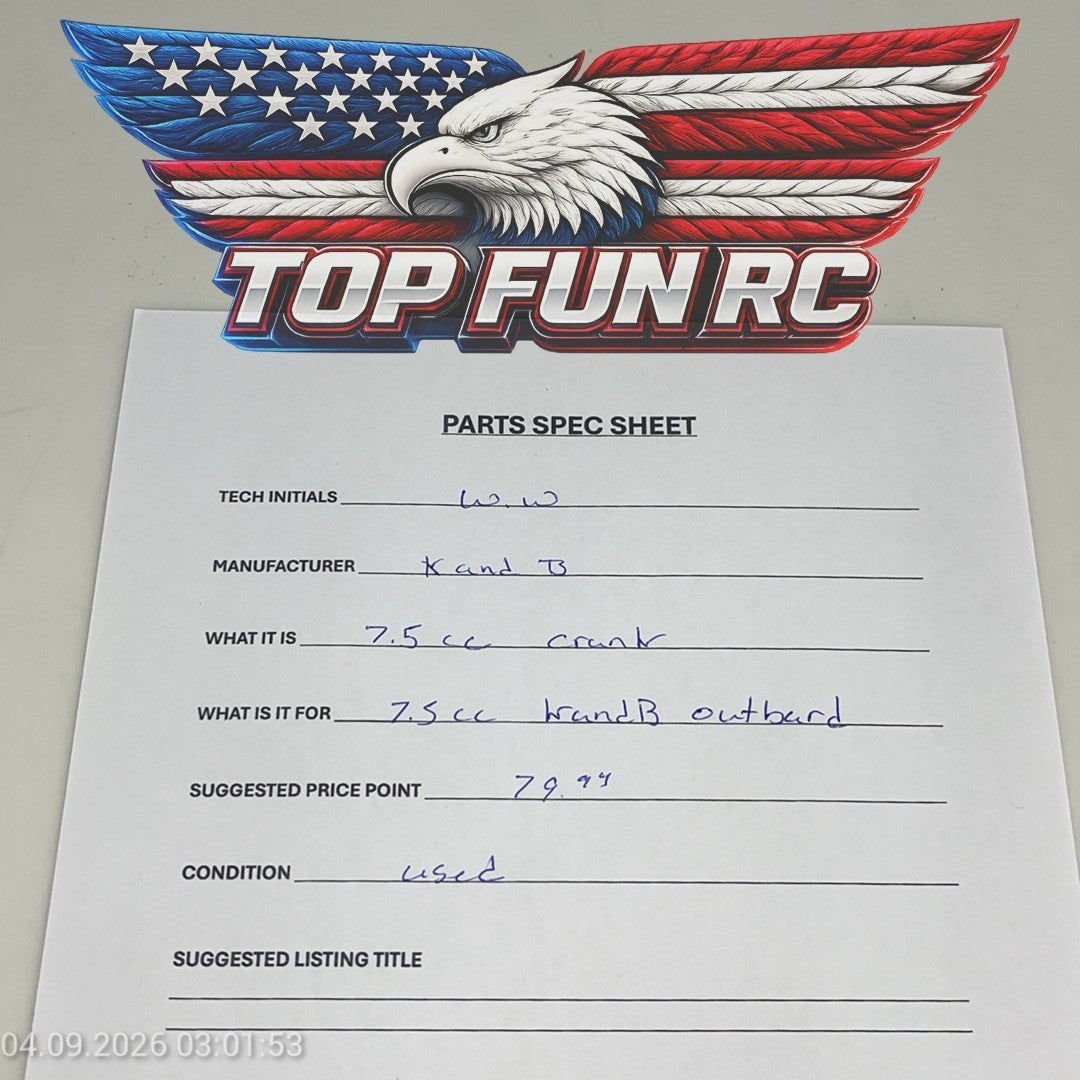 TOP FUN RC
PARTS SPEC SHEET
TECH INITIALS W.W
MANUFACTURER K and B
WHAT IT IS 7.5 cc crank
WHAT IS IT FOR 7.5 cc KandB outbard
SUGGESTED PRICE POINT 79.99
CONDITION used
SUGGESTED LISTING TITLE
04.09.2026 03:01:53